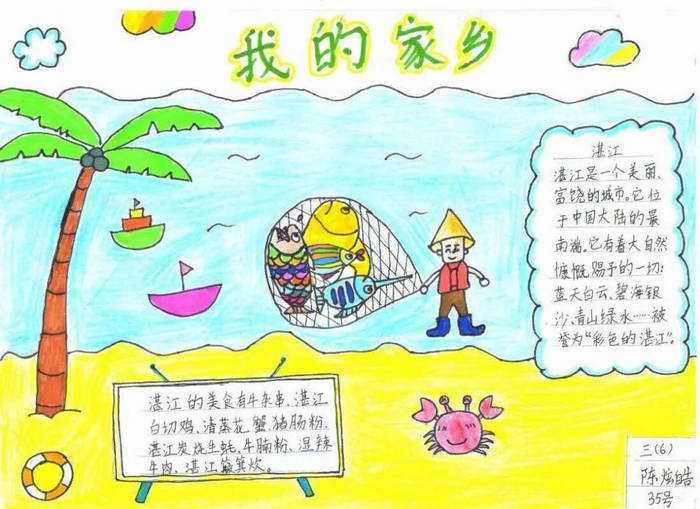 我的家乡
湛江
湛江是一个美丽、
富饶的城市。它位
于中国大陆的最
南端。它有着大自然
慷慨赐予的一切:
蓝天白云、碧海银
沙、青山绿水……被
誉为“彩色的湛江”。
湛江的美食有牛杂串、湛江
白切鸡、清蒸花蟹、猪肠粉、
湛江炭烧生蚝、牛腩粉、湿辣
牛肉、湛江簸箕炊。
三(6)
陈炫皓
35号